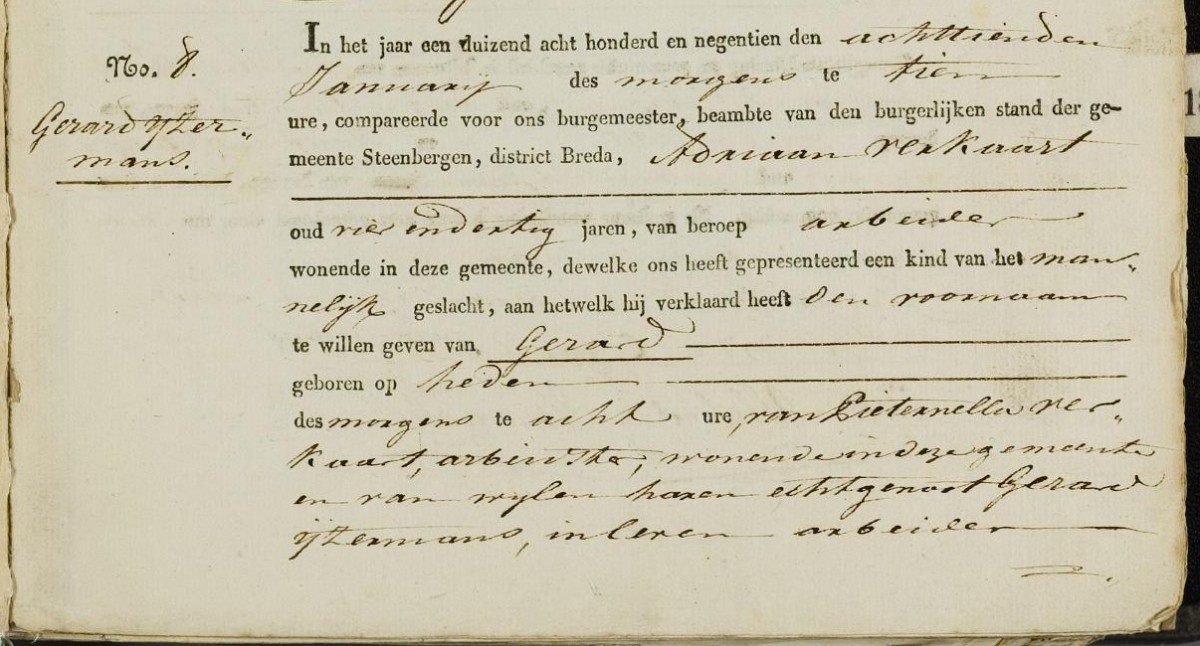 No. 8.
Gerard ijzer„
mans.
In het jaar een duizend acht honderd en negentien den achttienden
Januarij des morgens te tien
ure, compareerde voor ons burgemeester, beambte van den burgerlijken stand der ge-
meente Steenbergen, district Breda, Adriaan verkaart
oud vier endertig jaren, van beroep arbeider
wonende in deze gemeente, dewelke ons heeft gepresenteerd een kind van het man„
nelijk geslacht, aan hetwelk hij verklaard heeft den voornaam
te willen geven van Gerard
geboren op heden
des morgens te acht ure, van Pieternella ver„
kaart, arbeidster, wonende in deze gemeente
en van wylen haren echtgenoot Gerard
ijzermans, in leven arbeider